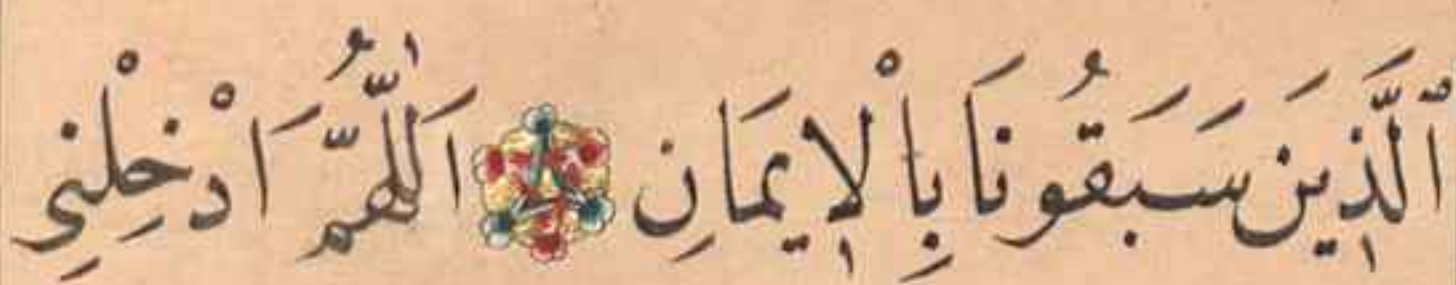 ٱلَّذٖينَ سَبَقُونَا بِاْلإٖيمَانِ اَللّٰهُمَّ اَدْخِلْنٖي